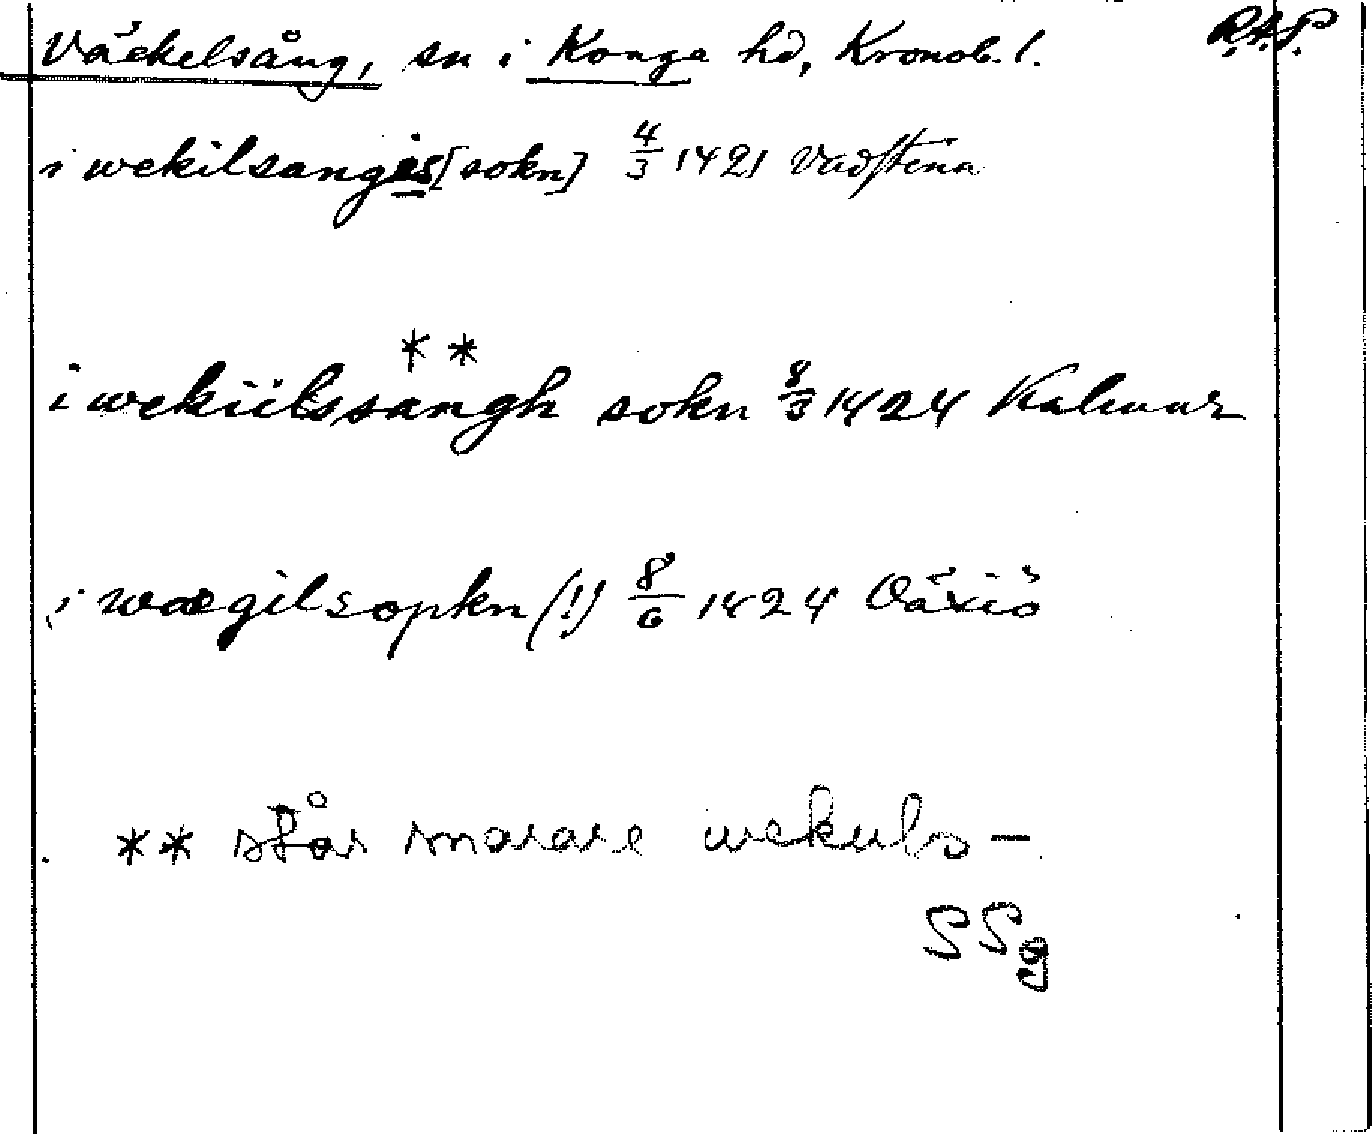 Väckelsång, sn i Konga hd, Kronob. l. R.A.P.
i wekilsangis [sokn] 4/3 1421 Vadstena
**
i wekiilssangh sokn 8/3 1424 Kalmar
i wægilsopkn (!) 8/6 1424 Växiö
** står snarare wekuls –
SSg